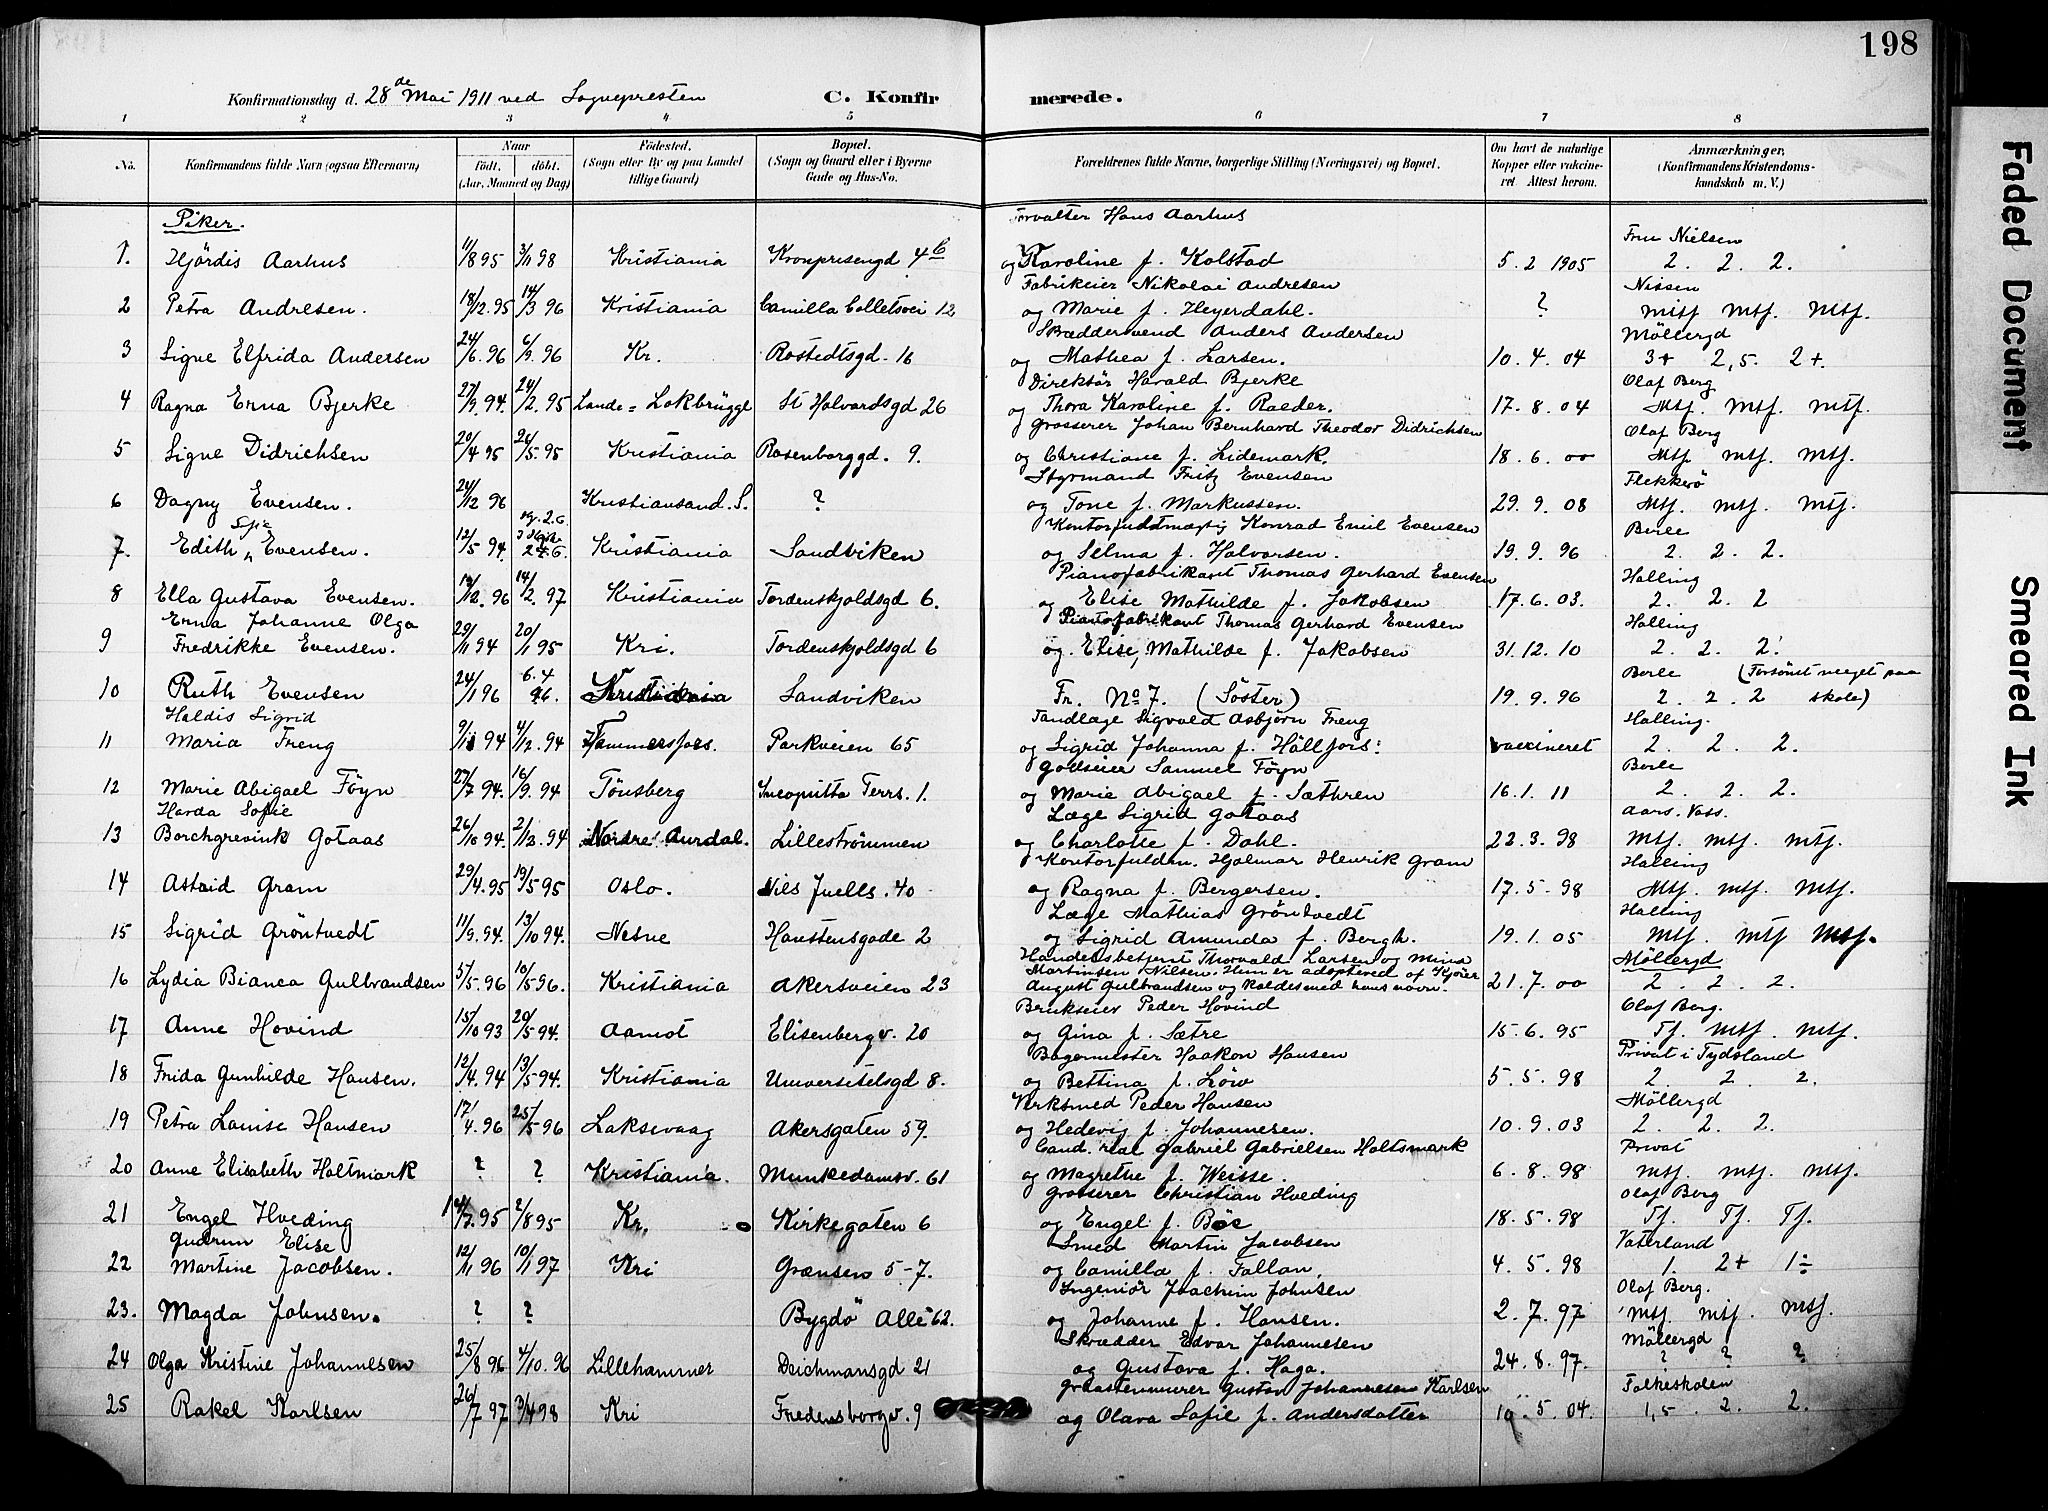 198
Konfirmationsdag d. 28de Mai 1911 ved Sognepresten C. Konfirmerede.
1 2 3 4 5 6 7 8
No. Konfirmandens fulde Navn (ogsaa Efternavn) Naar født. døbt. (Aar, Maaned og Dag) Fødested. (Sogn eller By og paa Landet tillige Gaard) Bopæl. (Sogn og Gaard eller i Byerne Gade og Hus-No. Forældrenes fulde Navne, borgerlige Stilling (Næringsvei) og Bopæl. Om havt de naturlige Kopper eller vakcineret Attest herom. Anmærkninger, (Konfirmandens Kristendomskundskab m. V.)
Piker. Forvalter Hans Aarhus Fru Nielsen
1. Hjördis Aarhus 11/8 95 3/11 98 Kristiania Kronprinsengd 4 b og Karoline f. Kolstad 5. 2 1905 2. 2. 2.
Fabrikeier Nikolai Andresen Nissen
2 Petra Andresen. 18/12. 95 14/3 96 Kristiania Camilla Colletsvei 12 og Marie f. Heyerdahl. ? mtf mtf. mtf.
Skræddersvend Anders Andersen Möllergd
3 Signe Elfrida Andersen 24/6. 96 6/9. 96 Kr. Rostedtsgd. 16 og Mathea f. Larsen. 10. 4. 04 3+ 2,5. 2+.
Direktör Harald Bjerke Olaf Berg
4 Ragna Erna Bjerke 27/9. 94. 24/2. 95 Lande = Lokbrügge St Halvardsgd 26 og Thora Karoline f. Raeder. 17. 8. 04 Mtf. mtf. mtf.
Grosserer Johan Bernhard Theodor Didrichsen Olaf Berg
5 Signe Didrichsen 20/4 95 26/5. 95 Kristiania Rosenborggd. 9. og Christiane f. Lidemark. 18. 6. 00 Mtf mtf. mtf.
Styrmand Fritz Evensen Flekkerö
6 Dagny Evensen. 24/12 96 Kristiansand. S. ? og Tone f. Markussen. 29. 9. 08 Mtf. mtf. mtf.
Sofie Kontorfuldmægtig Konrad Emil Evensen Berle
7. Edith Evensen. 12/5 94. Kristiania Sandviken og Selma f. Halvorsen. 19. 9. 96 2. 2. 2.
Pianofabrikant Thomas Gerhard Evensen Halling
8 Ella Gustava Evensen. /12. 96 14/2. 97 Kristiania Tordenskjoldsgd 6. og Elise Mathilde f. Jakobsen 17. 6. 03. 2. 2. 2
Erna Johanne Olga Pianofabrikant Thomas Gerhard Evensen Halling
9 Fredrikke Evensen. 29/11 94 20/1 95 Kri. Tordenskjoldsgd 6 og. Elise, Mathilde f. Jakobsen 31. 12. 10 2. 2. 2.
Berle (Forsömt meget paa
10 Ruth Evensen 24/1 96 6. 4 96. Kristiania Sandviken Fr. No 7. (Söster) 19. 9. 96 2. 2. 2 skole)
Haldis Sigrid Tandlæge Sigvald Asbjörn Freng Halling.
11 Maria Freng 9/11 94 4/12. 94 Tammersfors. Parkveien 65 og Sigrid Johanna f. Hällfors. vaccineret 2. 2. 2.
Godseier Samuel Föyn Berle
12 Marie Abigael Föyn 27/7 94. 16/9. 94 Tönsberg Incognito Terrs. 1. og Marie Abigael f. Sæthren 16. 1. 11 2. 2. 2.
Harda Sofie Læge Sigrid Gotaas Aars. Voss.
13 Borchgrevink Gotaas 26/10 94. 2/12. 94 Nordre Aurdal. Lilleströmmen og Charlotte f. Dahl. 22. 3. 98 Mtf. mtf. mtf.
Kontorfuldm. Hjalmar Henrik Gram Halling
14 Astrid Gram 29/4. 95 19/5 95 Oslo. Nils Juells. 40 og Ragna f. Bergersen. 17. 5. 98 Mtf. mtf. mtf.
Læge Mathias Gröntvedt Halling
15 Sigrid Gröntvedt 11/9. 94. 13/10 94. Nesne Hanstensgade 2 og Sigrid Amunda f. Bergh. 19. 1. 05 Mtf. mtf mtf.
Handelsbetjent Thorvald Larsen og Mina Möllergd
16 Lydia Bianca Gulbrandsen 5/5. 96 10/5 96. Kristiania Akersveien 23 Martinsen Nilsen. Hun er adopteret af Kjörer 21. 7. 00 2. 2. 2.
August Gulbrandsen og kaldes med hans navn.
Brukseier Peder Hovind Olaf Berg.
17 Anne Hovind 15/10 93 20/5 94. Aamot Elisenbergv. 20 og Gina f. Sætre 15. 6. 95 Tf. mtf. mtf.
Bagermester Haakon Hansen Privat i Tydsland
18 Frida Gunhilde Hansen. 12/4. 94 13/5 94. Kristiania Universitetsgd 8. og Bettina f. Löw 5. 5. 98 2. 2. 2.
Verksmed Peder Hansen Möllergd
19 Petra Louise Hansen 17/4. 96 25/5 96 Laksevaag Akersgaten 59. og Hedevig f. Johannesen. 10. 9. 03 2. 2. 2.
Cand. real Gabriel Gabrielsen Holtsmark Privat
20 Anne Elisabeth Holtmark ? ? Kristiania. Munkedamsv. 61 og Magrethe f. Weisse. 6. 8. 98 mtf. mtf. mtf.
Grosserer Christian Hveding Olaf Berg
21 Engel Hveding 14/7. 95 2/8 95 Kr. Kirkegaten 6 og Engel f. Böe 18. 5. 98 Tf. Tf. Tf.
Gudrun Elise Smed Martin Jacobsen Vaterland
22 Martine Jacobsen. 12/11 96 10/1 97 Kri Grænsen 5-7. og Camilla f. Fallan. 4. 5. 98 1. 2+ 1÷
Ingeniör Joachim Johnsen Olaf Berg.
23. Magda Johnsen. ? ? Bygdö Alle 62. og Johanne f. Hansen. 2. 7. 97 mtf. mtf. mtf.
Skrædder Edvar Johannesen Möllergd
24 Olga Kristine Johannesen 25/8 96 4/10. 96 Lillehammer Deichmansgd 21 og Gustava f. Haga. 24. 8. 97. ? ? ?
Graastenmurer Gustav Johannesen Karlsen Folkeskolen
25 Rakel Karlsen 26/7 97 3/4 98 Kri Fredensborgv. 9 og Olava Sofie f. Andersdatter 10. 5. 04. 1,5 2. 2.
Faded Document
Smeared Ink